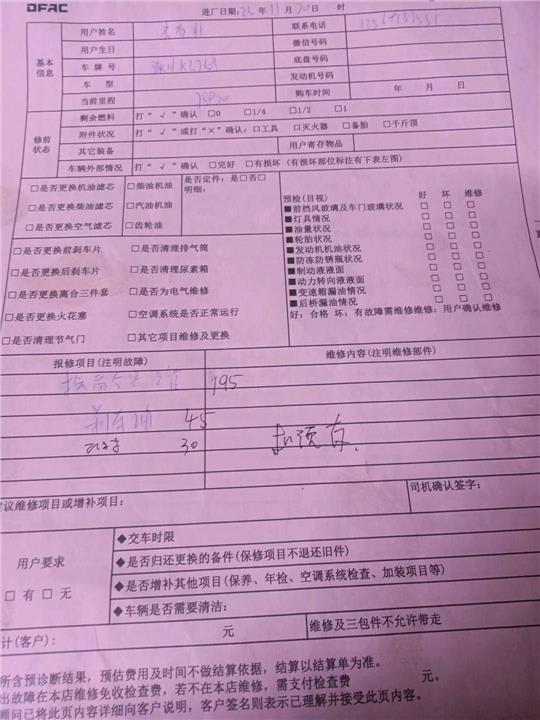 DFAC
进厂日期: 25 年 11 月 20 日 时
基本信息
用户姓名 联系电话
用户生日 微信号码
车牌号 底盘号码
车型 发动机号码
当前里程 购车时间 年 月 日
修前状态
剩余燃料 打“√”确认 □0 □1/4 □1/2 □1
附件状况 打“√”或打“×”确认: □工具 □灭火器 □备胎 □千斤顶
其它装备 用户寄存物品
车辆外部情况 打“√”确认 □完好 □有损坏 (有损坏部位标注有下表左图)
□是否更换机油滤芯 □柴油机油 是否定件: 是□否□
明细:
□是否更换柴油滤芯 □汽油机油
□是否更换空气滤芯 □齿轮油
预检(目视) 好 坏 维修
■前挡风玻璃及车门玻璃状况 □ □ □
■灯具情况 □ □ □
■油量状况 □ □ □
■轮胎状况 □ □ □
■发动机机油状况 □ □ □
■防冻防锈瓶状况 □ □ □
■制动液液面 □ □ □
■动力转向液液面 □ □ □
■变速箱漏油情况 □ □ □
■后桥漏油情况 □ □ □
好: 合格 坏: 有故障需维修维修: 用户确认维修
□是否更换前刹车片 □是否清理排气筒
□是否更换后刹车片 □是否清理尿素箱
□是否更换离合三件套 □是否为电气维修
□是否更换火花塞 □空调系统是否正常运行
□是否清理节气门 □其它项目维修及更换
报修项目(注明故障) 维修内容(注明维修部件)
195
刹车油 45
30
议维修项目或增补项目: 司机确认签字:
用户要求
□有 □无
◆交车时限
◆是否归还更换的备件(保修项目不退还旧件)
◆是否增补其他项目(保养、年检、空调系统检查、加装项目等)
◆车辆是否需要清洁:
计(客户): 元 维修及三包件不允许带走
所含预诊断结果，预估费用及时间不做结算依据，结算以结算单为准。
出故障在本店维修免收检查费，若不在本店维修，需支付检查费 元。
顾问已将此页内容详细向客户说明，客户签名则表示已理解并接受此页内容。